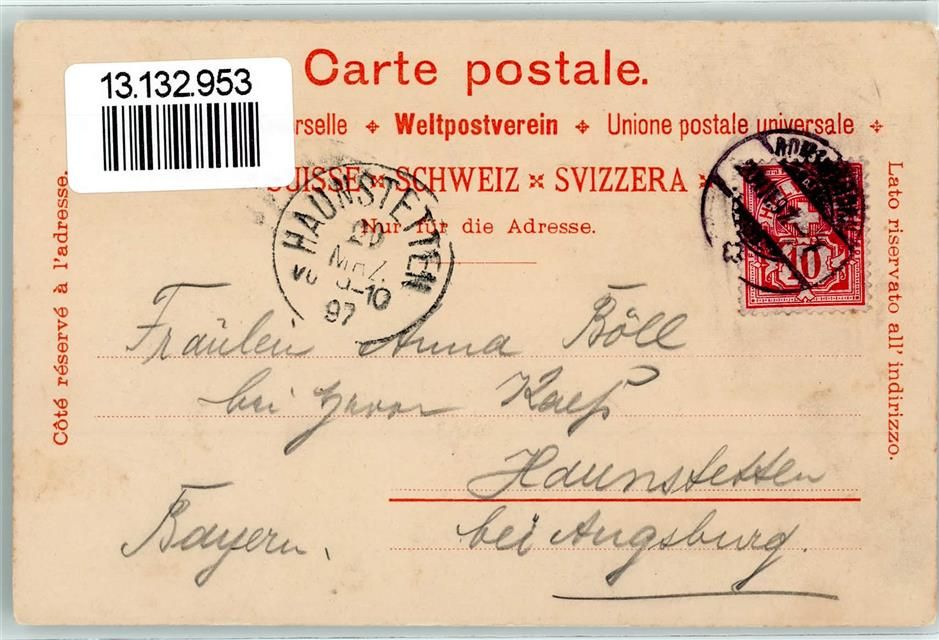 13.132.953
Carte postale.
rselle ✦ Weltpostverein ✦ Unione postale universale ✦
SUISSE ✕ SCHWEIZ ✕ SVIZZERA
Nur für die Adresse.
Côté réservé à l'adresse.
Lato riservato all' indirizzo.
HAUNSTETTEN
20
MRZ.
9-10
97
10
Fräulein Anna Böll
bei
Haunstetten
bei Augsburg.
Bayern.